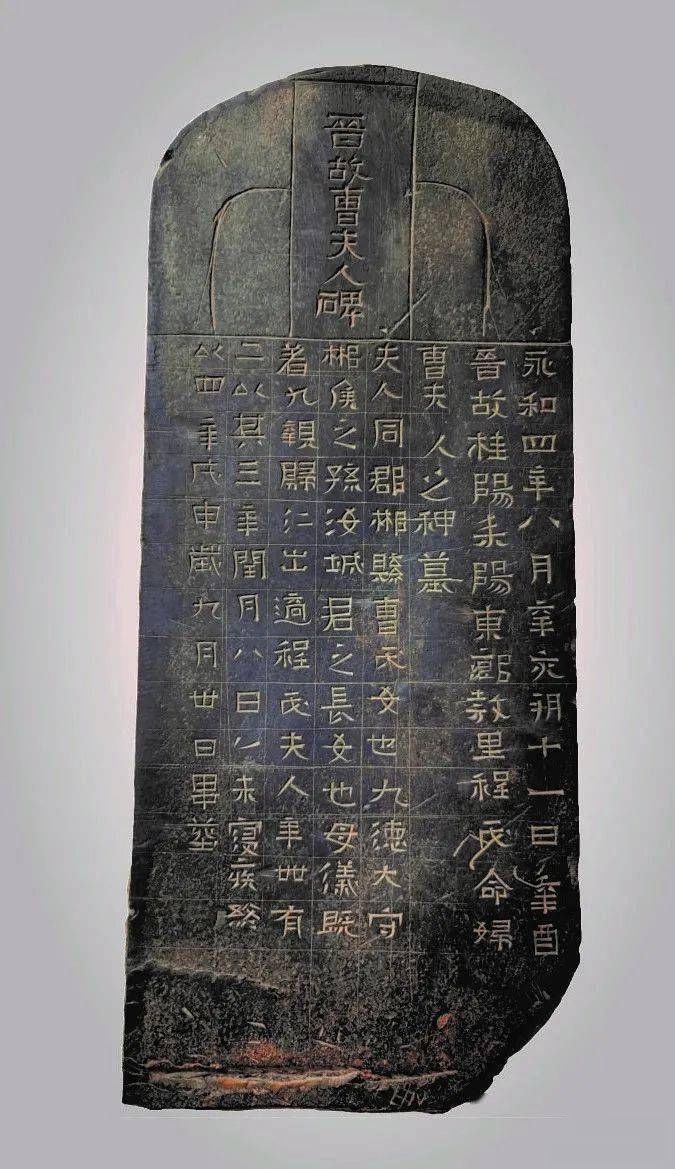 晉故曹夫人碑
永和四年八月辛亥朔十一日辛酉
晉故桂陽耒陽東鄉教里程氏命婦
曹夫人之神墓
夫人同郡郴縣曹氏女也九德大守
郴侯之孫汝城君之長女也母儀既
著九親歸仁出適程氏夫人年卅有
二以其三年閏月八日乙未寢疾終
以四年戊申歲九月卅日畢葬